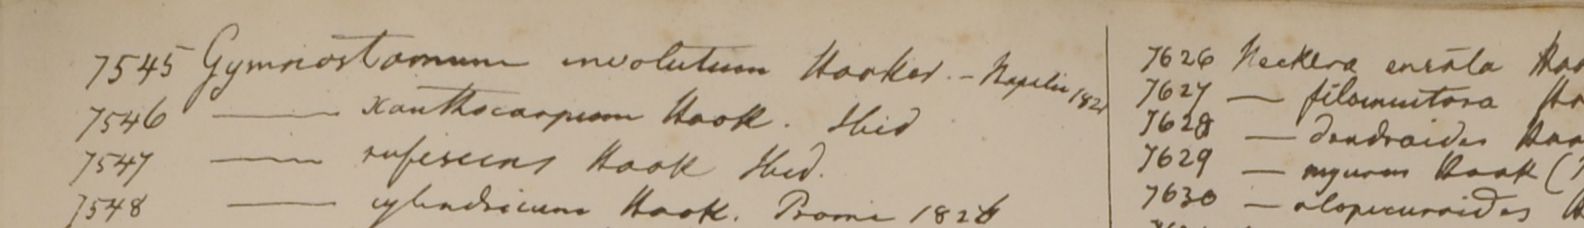 7545 Gymnostomum involutum Hooker. - Napalia 1821
7546 —— xanthocarpum Hook. Ibid
7547 —— rufescens Hook Ibid.
7548 —— cylindricum Hook. Prome 1826
7626 Neckera
7627 — filamentosa
7628 — dendroides
7629 — myurum Hook (
7630 — alopecuroides